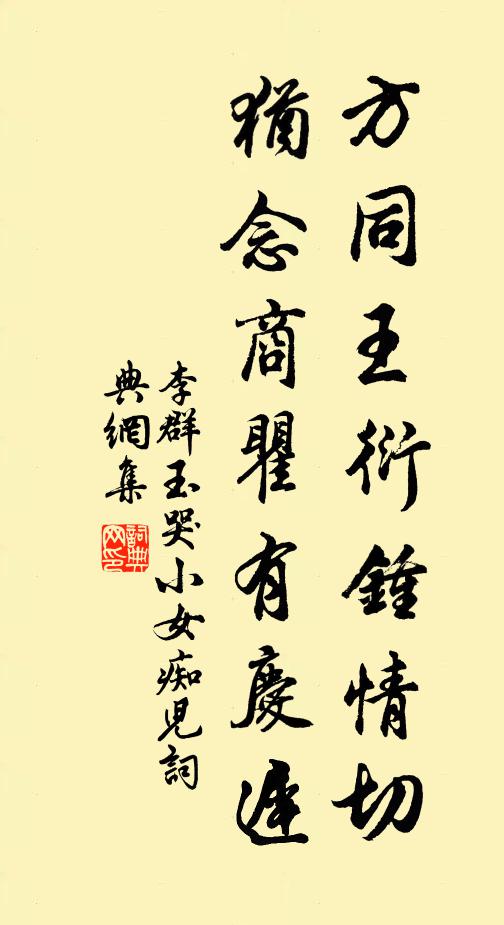 方同王衍鍾情切
猶念商瞿有慶遲
李群玉哭小女痴児詞
典網集
詞典
网印